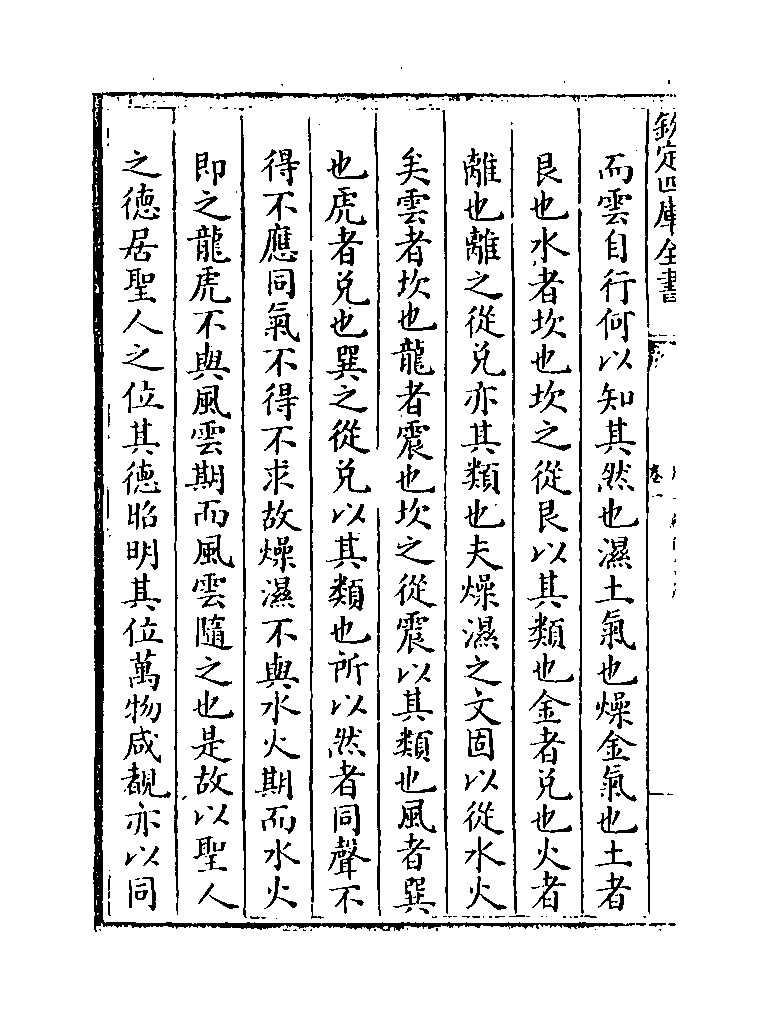 欽定四庫全書
卷一
而雲自行何以知其然也濕土氣也燥金氣也土者
艮也水者坎也坎之從艮以其類也金者兌也火者
離也離之從兌亦其類也夫燥濕之文固以從水火
矣雲者坎也龍者震也坎之從震以其類也風者巽
也虎者兌也巽之從兌以其類也所以然者同聲不
得不應同氣不得不求故燥濕不與水火期而水火
即之龍虎不與風雲期而風雲隨之也是故以聖人
之德居聖人之位其德昭明其位萬物咸覩亦以同